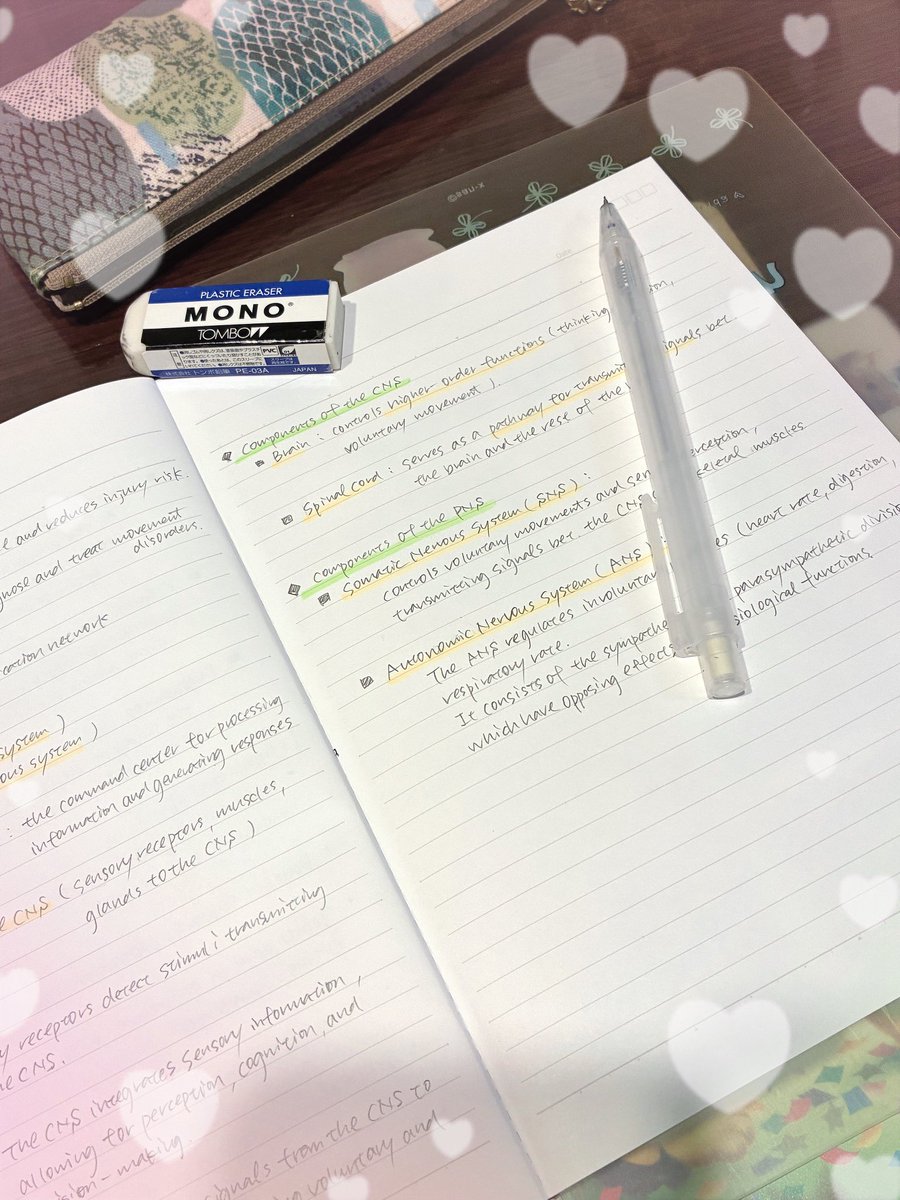 PLASTIC ERASER
MONO®
TOMBOW
PVC
株式会社トンボ鉛筆 PE-03A JAPAN
Date
e and reduces injury risk.
gnose and treat movement
disorders.
cation network
system)
ous system)
: the command center for processing
information and generating responses
e CNS (sensory receptors, muscles,
glands to the CNS)
y receptors detect stimuli transmitting
he CNS.
The CNS integrates sensory information,
allowing for perception, cognition, and
sion-making.
ignals from the CNS to
ing voluntary and
components of the CNS
Brain : controls higher order functions (thinking
voluntary movement).
Spinal cord : serves as a pathway for transmit signals bet.
the brain and the rest of the
components of the PNS
Somatic Nervous System (SNS) :
controls voluntary movements and sen perception,
transmitting signals bet. the CNS skeletal muscles
Autonomic Nervous System (ANS) :
The ANS regulates involuntary es (heart rate, digestion,
respiratory rate.
It consists of the sympathe parasympathetic division
which have opposing effects siological functions.